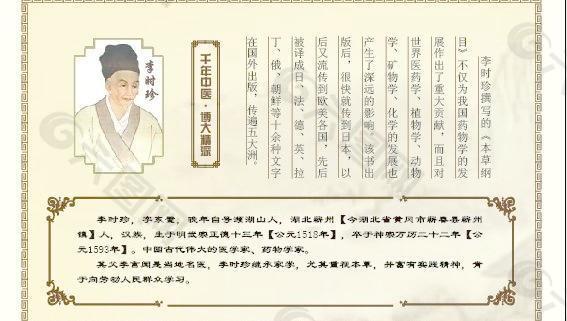 李时珍
千年中医·博大精深
李时珍撰写的《本草纲
目》不仅为我国药物学的发
展作出了重大贡献，而且对
世界医药学、植物学、动物
学、矿物学、化学的发展也
产生了深远的影响。该书出
版后，很快就传到日本，以
后又流传到欧美各国，先后
被译成日、法、德、英、拉
丁、俄、朝鲜等十余种文字
在国外出版，传遍五大洲。
李时珍，字东璧，晚年自号濒湖山人，湖北蕲州【今湖北省黄冈市蕲春县蕲州
镇】人，汉族，生于明武宗正德十三年【公元1518年】，卒于神宗万历二十二年【公
元1593年】。中国古代伟大的医学家、药物学家。
其父李言闻是当地名医，李时珍继承家学，尤其重视本草，并富有实践精神，肯
于向劳动人民群众学习。